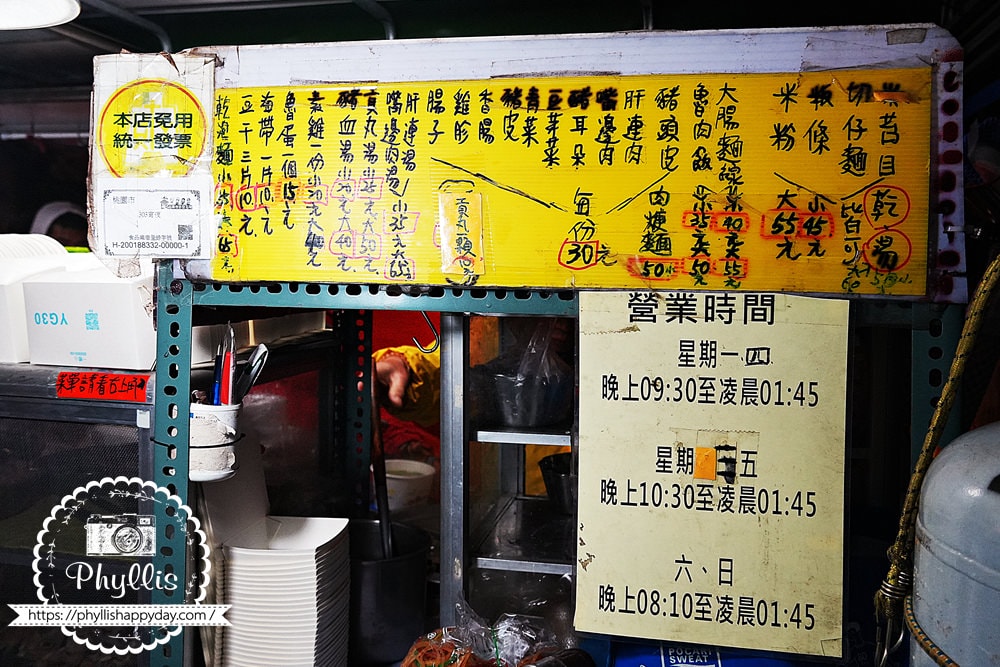 黃昔目
切仔麵
粄條
米粉
乾
湯
皆可
小45元
大55元
大腸麵線
小40元
大55元
魯肉飯
小35元
大50元
肉焿麵
50
豬頭皮
肝連肉
嘴邊肉
豬耳朵
豆芽菜
青菜
豬皮
香腸
雞胗
腸子
每份30元
貢丸
肝連湯
嘴邊肉湯
小35元
大65元
貢丸湯
豬血湯
大40元
大50元
雞一份
魯蛋一個15元
海帶一片10元
豆干三片10元
乾湯麵
小35
45元
本店免用
統一發票
桃園市
H-200188332-00000-1
YG30
菜單請看右上啊
營業時間
星期一四
晚上09:30至凌晨01:45
星期 五
晚上10:30至凌晨01:45
六、日
晚上08:10至凌晨01:45
POCARI
SWEAT
Phyllis
https://phyllishappyday.com/